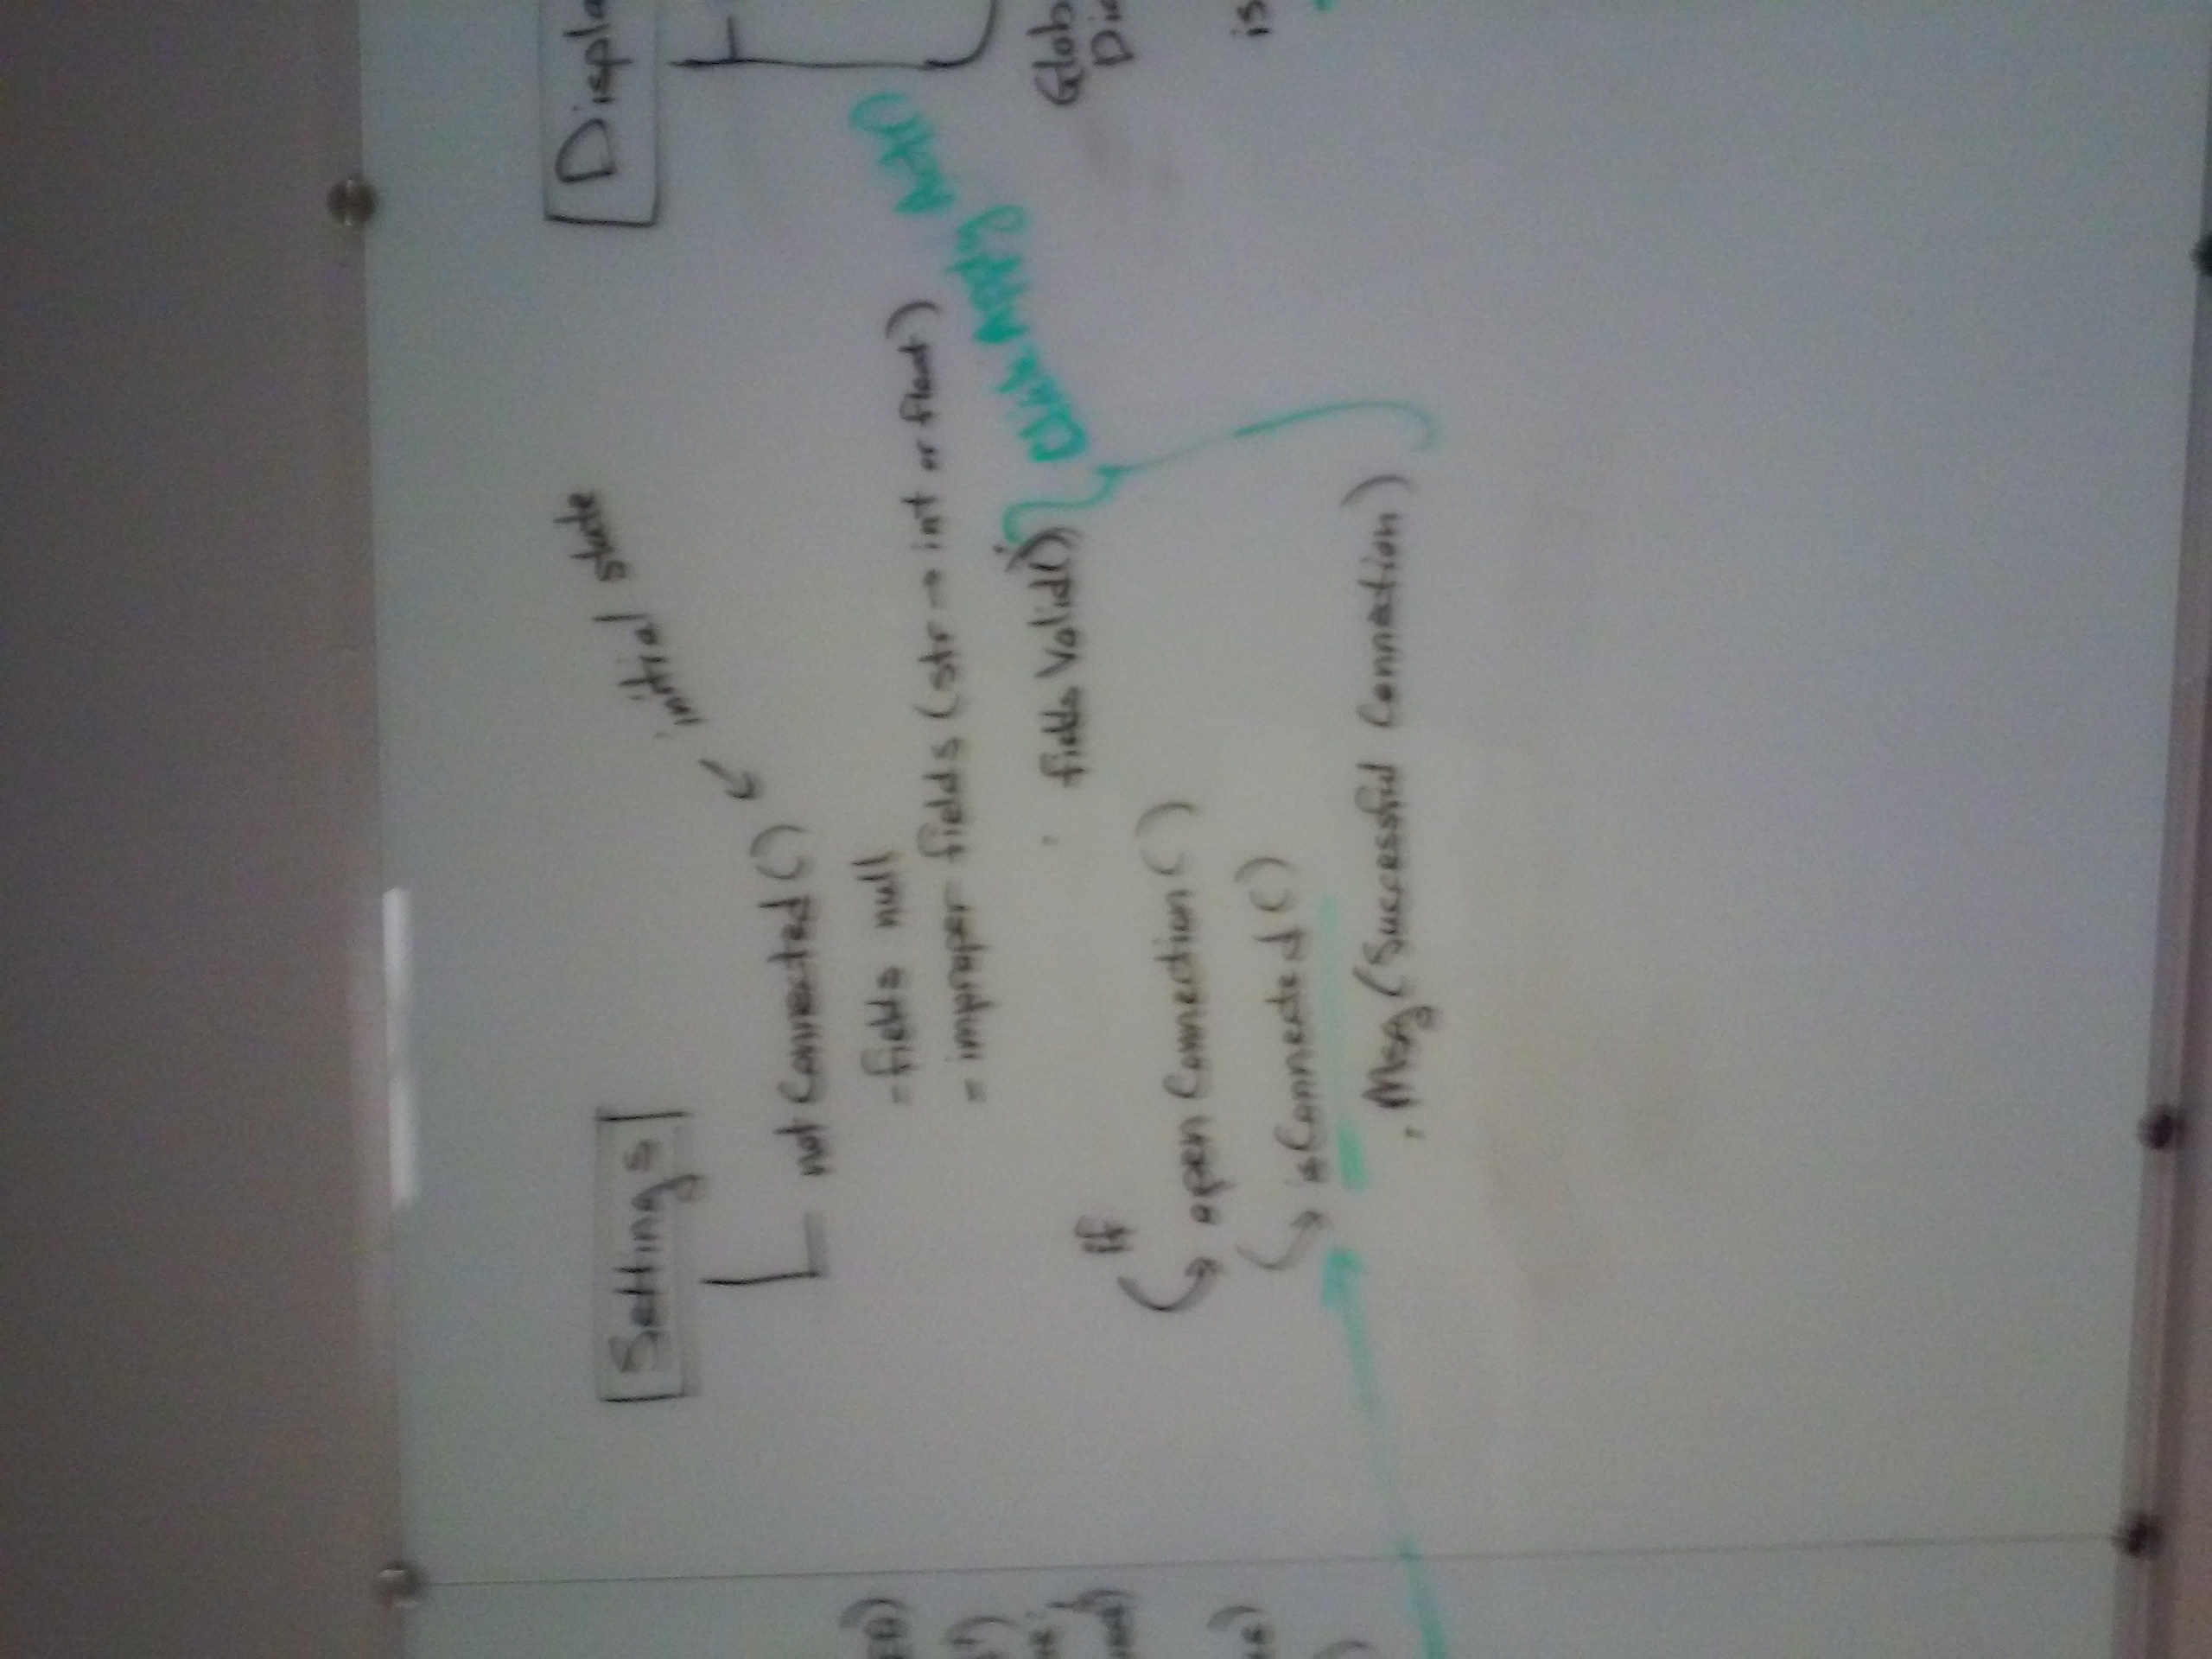 Settings
initial state
not Connected()
- fields null
- improper fields (str → int or float)
fields Valid()
Click Apply
if
open Connection()
isConnected()
. Msg (Successful Connection)
Displa
Glob
is